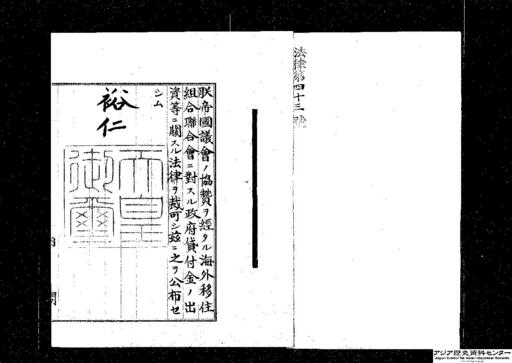 法律第四十三號
朕帝國議會ノ協贊ヲ經タル海外移住
組合聯合會ニ對スル政府貸付金ノ出
資等ニ關スル法律ヲ裁可シ玆ニ之ヲ公布セ
シム
裕仁
天皇御璽
内閣
アジア歴史資料センター
Japan Center for Asian Historical Records